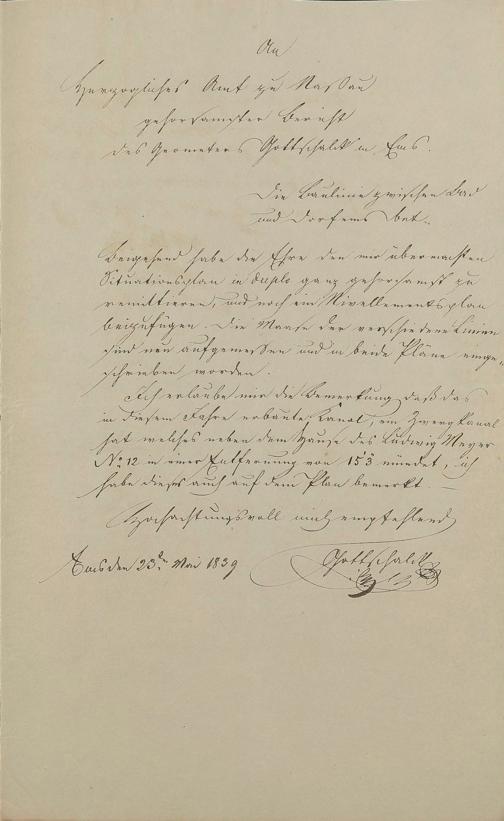 An
Herzogliches Amt zu Nassau
gehorsamster Bericht
des Geometers Gottschalck in Ems.
Die Baulinie zwischen Bad
und Dorfems bet.
Beigehend habe die Ehre den mir übermachten
Situationsplan in duplo ganz gehorsamst zu
remittieren, und noch ein Nivellementsplan
beizufügen. Die Maase der verschiedene Linien
sind neu aufgemessen und in beide Pläne einge-
schrieben worden.
Ich erlaube mir die Bemerkung daß das
in diesem Jahre erbaute Kanal, ein Zwergkanal
hat welches neben dem Hause des Ludwig Meyer
No 12 in einer Entfernung von 153 mündet, ich
habe dieses auch auf dem Plan bemerkt
Hochachtungsvoll mich empfehlend
Ems den 23ten Mai 1839
Gottschalck